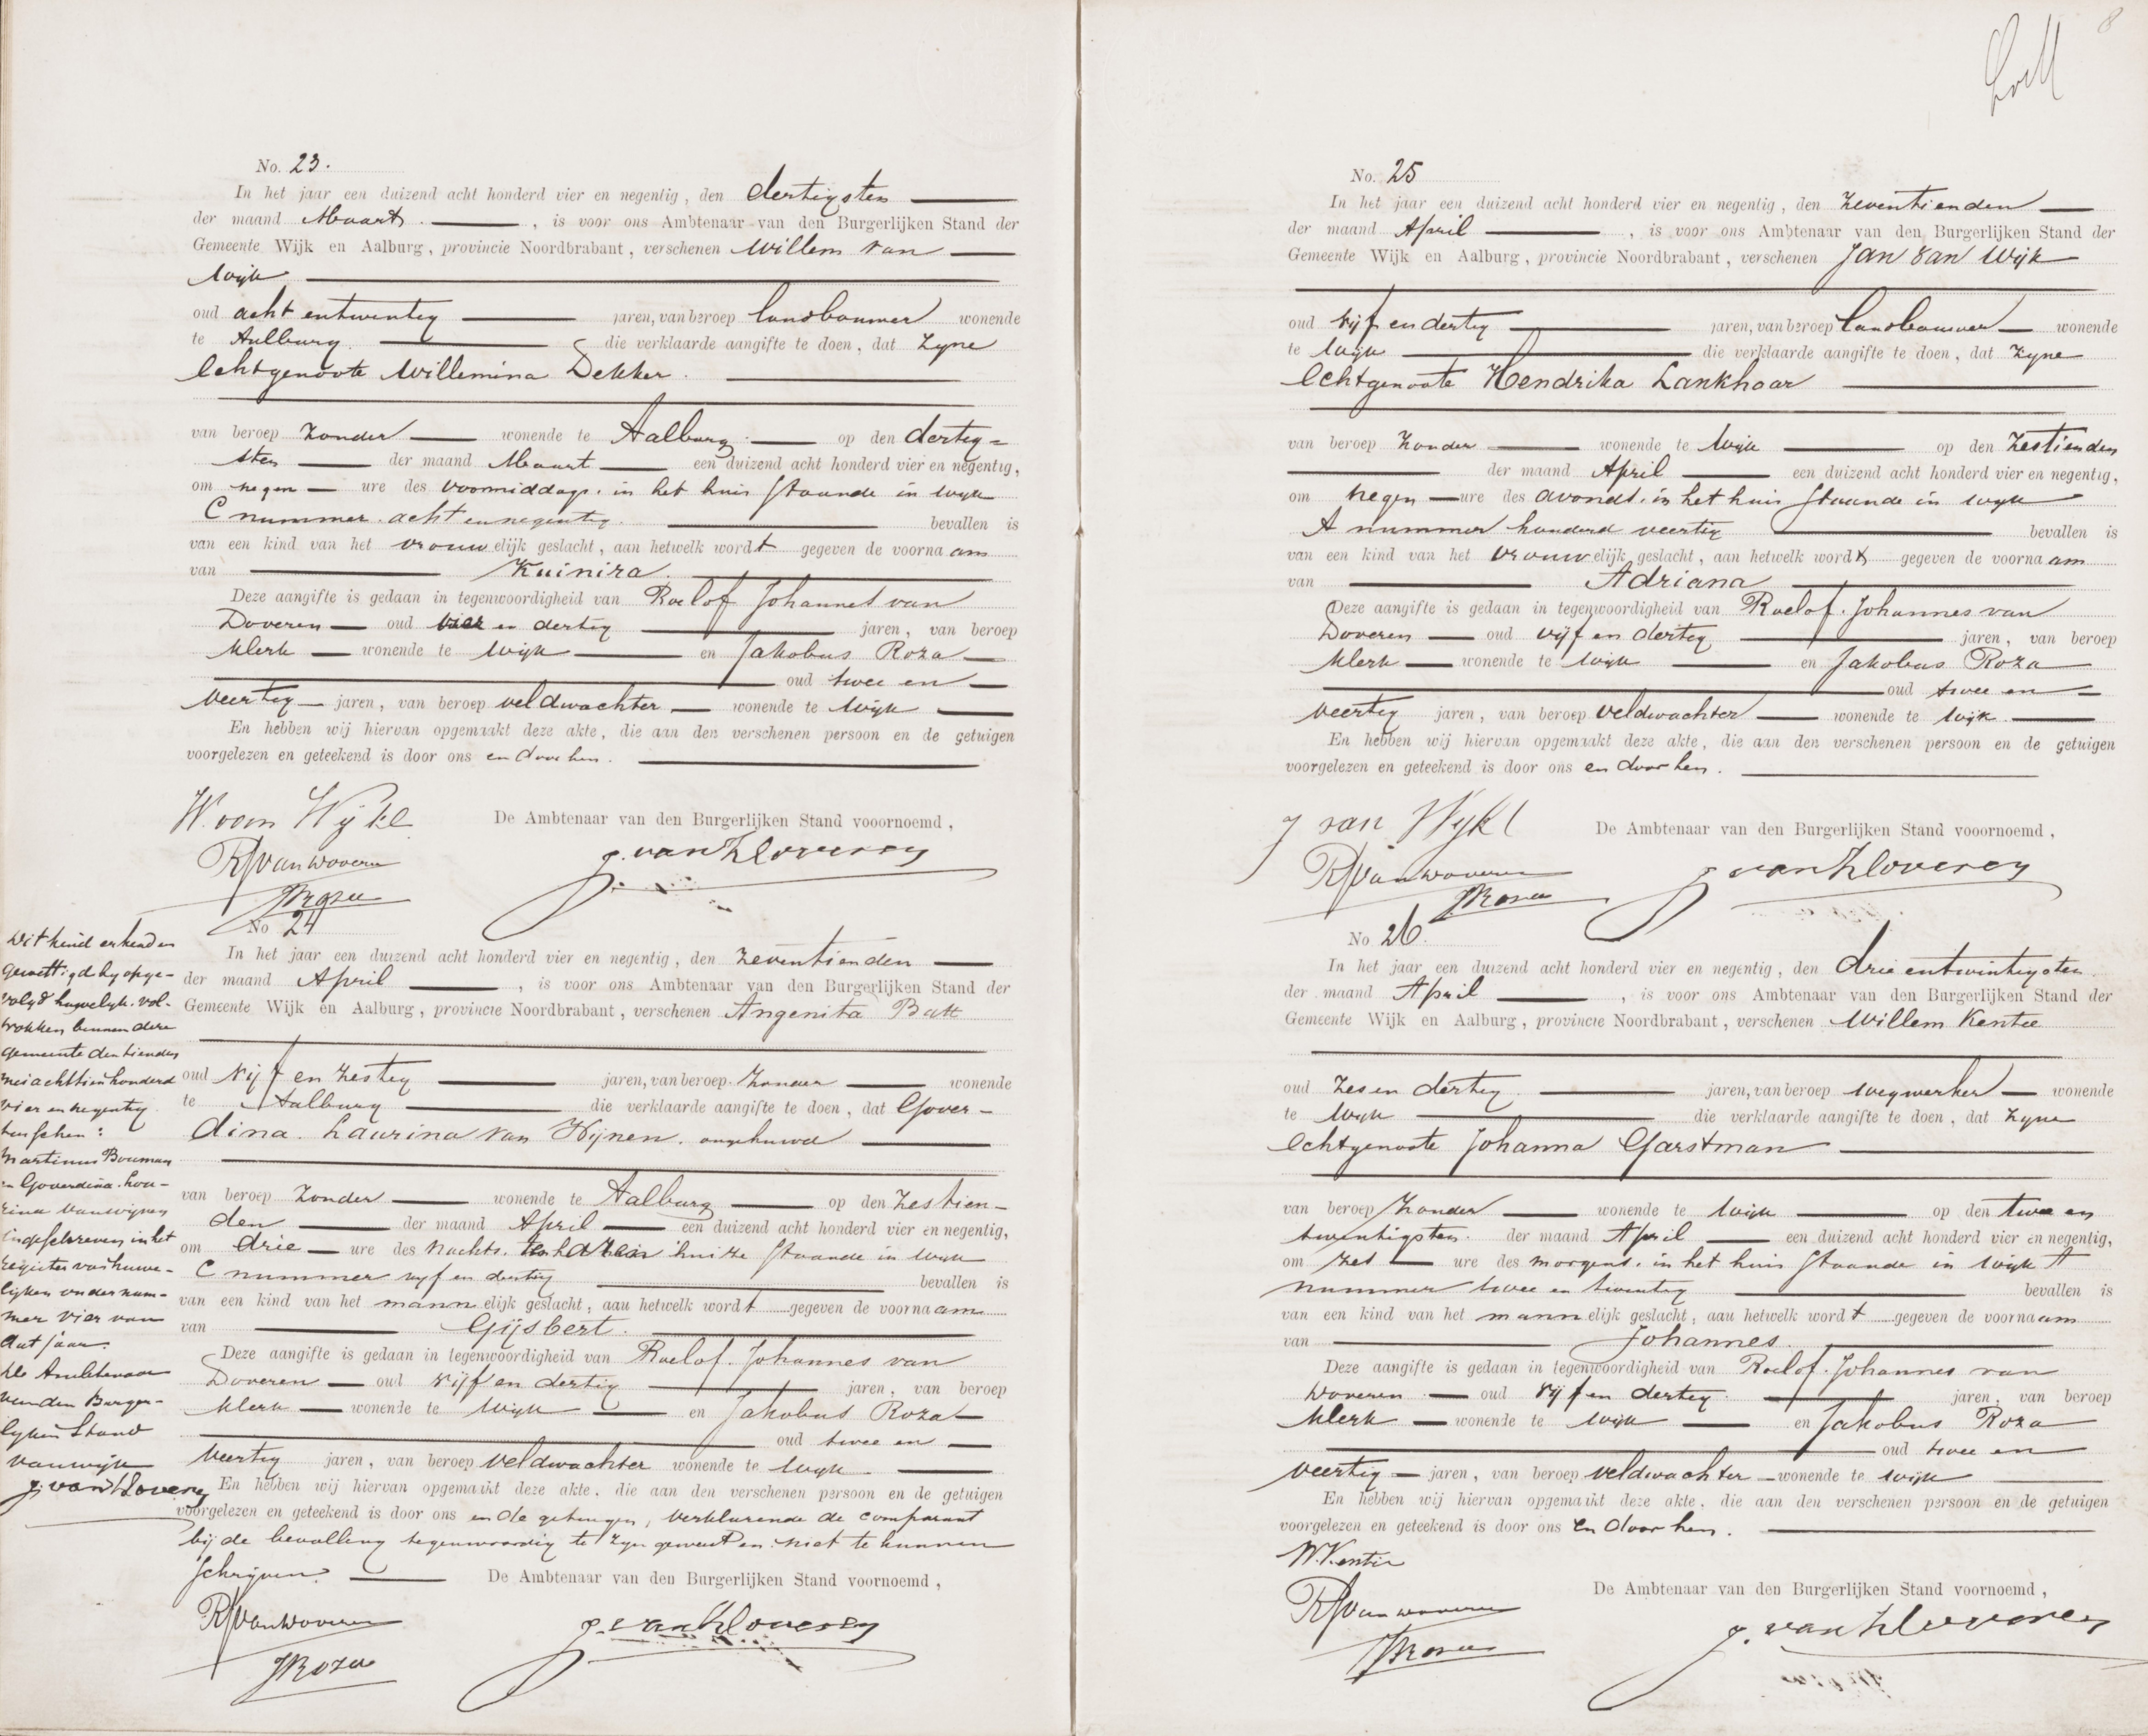 No. 23.
In het jaar een duizend acht honderd vier en negentig, den dertigsten
der maand Maart, is voor ons Ambtenaar van den Burgerlijken Stand der
Gemeente Wijk en Aalburg, provincie Noordbrabant, verschenen Willem van
Wijk
oud acht entwintig jaren, van beroep landbouwer wonende
te Aalburg. die verklaarde aangifte te doen, dat zijne
Echtgenoote Willemina Dekker.
van beroep zonder wonende te Aalburg op den dertig-
sten der maand Maart een duizend acht honderd vier en negentig,
om negen ure des voormiddags, in het huis staande in wijk
C nummer acht en negentig. bevallen is
van een kind van het vrouwelijk geslacht, aan hetwelk wordt gegeven de voornaam
van Kuinira.
Deze aangifte is gedaan in tegenwoordigheid van Roelof Johannes van
Doveren oud vier en dertig jaren, van beroep
klerk wonende te Wijk en Jakobus Roza
oud twee en
veertig jaren, van beroep veldwachter wonende te Wijk
En hebben wij hiervan opgemaakt deze akte, die aan den verschenen persoon en de getuigen
voorgelezen en geteekend is door ons en door hen.
W. van Wijk
De Ambtenaar van den Burgerlijken Stand vooornoemd,
No 24
In het jaar een duizend acht honderd vier en negentig, den zeventienden
der maand April, is voor ons Ambtenaar van den Burgerlijken Stand der
Gemeente Wijk en Aalburg, provincie Noordbrabant, verschenen Angenita Batt
oud vijf en zestig jaren, van beroep zonder wonende
te Aalburg die verklaarde aangifte te doen, dat Gover-
dina Laurina van Wijnen, ongehuwd
van beroep zonder wonende te Aalburg op den zestien-
den der maand April een duizend acht honderd vier en negentig,
om drie ure des nachts, huize staande in wijk
C nummer vijf en dertig bevallen is
van een kind van het mannelijk geslacht, aau hetwelk wordt gegeven de voornaam
van Gijsbert.
Deze aangifte is gedaan in tegenwoordigheid van Roelof Johannes van
Doveren oud vijf en dertig jaren, van beroep
klerk wonende te Wijk en Jakobus Roza
oud twee en
veertig jaren, van beroep veldwachter wonende te Wijk
En hebben wij hiervan opgemaakt deze akte, die aan den verschenen persoon en de getuigen
voorgelezen en geteekend is door ons en de getuigen, verklarende de comparant
bij de bevalling tegenwoordig te zijn geweest en niet te kunnen
schrijven.
De Ambtenaar van den Burgerlijken Stand voornoemd,
JRoza
Dit kind erkend en
gewettigd by opge-
volgd huwelijk vol-
trokken binnen deze
gemeente den tienden
mei achttienhonderd
vier en negentig
tusschen:
Martinus Bouman
Goverdina Lau-
rina van Wijnen
ingeschreven in het
register van huwe-
lijken onder num-
mer vier van
dat jaar.
De Ambtenaar
van den Burger-
lijken Stand
van Wijk
No. 25
In het jaar een duizend acht honderd vier en negentig, den zeventienden
der maand April, is voor ons Ambtenaar van den Burgerlijken Stand der
Gemeente Wijk en Aalburg, provincie Noordbrabant, verschenen Jan van Wijk
oud vijf en dertig jaren, van beroep landbouwer wonende
te Wijk die verklaarde aangifte te doen, dat zijne
Echtgenoote Hendrika Lankhaar
van beroep zonder wonende te Wijk op den zestienden
der maand April een duizend acht honderd vier en negentig,
om negen ure des avonds, in het huis staande in wijk
A nummer honderd veertig bevallen is
van een kind van het vrouwelijk geslacht, aan hetwelk wordt gegeven de voornaam
van Adriana
Deze aangifte is gedaan in tegenwoordigheid van Roelof Johannes van
Doveren oud vijf en dertig jaren, van beroep
klerk wonende te Wijk en Jakobus Roza
oud twee en
veertig jaren, van beroep veldwachter wonende te Wijk
En hebben wij hiervan opgemaakt deze akte, die aan den verschenen persoon en de getuigen
voorgelezen en geteekend is door ons en door hen.
J van Wijk
De Ambtenaar van den Burgerlijken Stand vooornoemd,
No 26.
In het jaar een duizend acht honderd vier en negentig, den drie entwintigsten
der maand April, is voor ons Ambtenaar van den Burgerlijken Stand der
Gemeente Wijk en Aalburg, provincie Noordbrabant, verschenen Willem Kentie
oud zes en dertig jaren, van beroep wegwerker wonende
te Wijk die verklaarde aangifte te doen, dat zijne
Echtgenoote Johanna Garstman
van beroep zonder wonende te Wijk op den twee en
twintigsten der maand April een duizend acht honderd vier en negentig,
om zes ure des morgens, in het huis staande in wijk A
nummer twee en twintig bevallen is
van een kind van het mannelijk geslacht, aau hetwelk wordt gegeven de voornaam
van Johannes.
Deze aangifte is gedaan in tegenwoordigheid van Roelof Johannes van
Doveren oud vijf en dertig jaren, van beroep
klerk wonende te Wijk en Jakobus Roza
oud twee en
veertig jaren, van beroep veldwachter wonende te Wijk
En hebben wij hiervan opgemaakt deze akte, die aan den verschenen persoon en de getuigen
voorgelezen en geteekend is door ons en door hen.
W. Kentie
De Ambtenaar van den Burgerlijken Stand voornoemd,